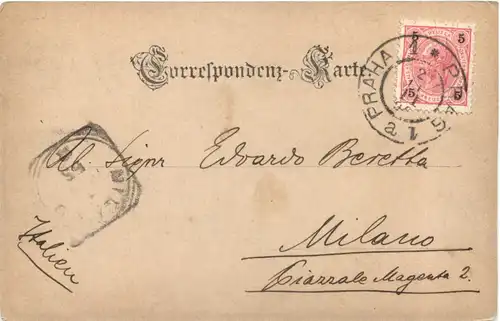 Correspondenz-Karte.
5 5
5 5
PRAHA
PRAG
a 1
Al Signr Edoardo Beretta
MIL
Italien
Milano
Piazzale Magenta 2.